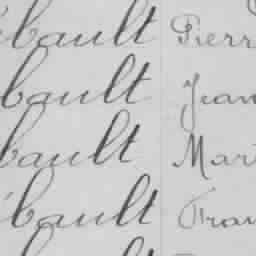 bault Pierr
bault Jean
bault Mari
bault Fran